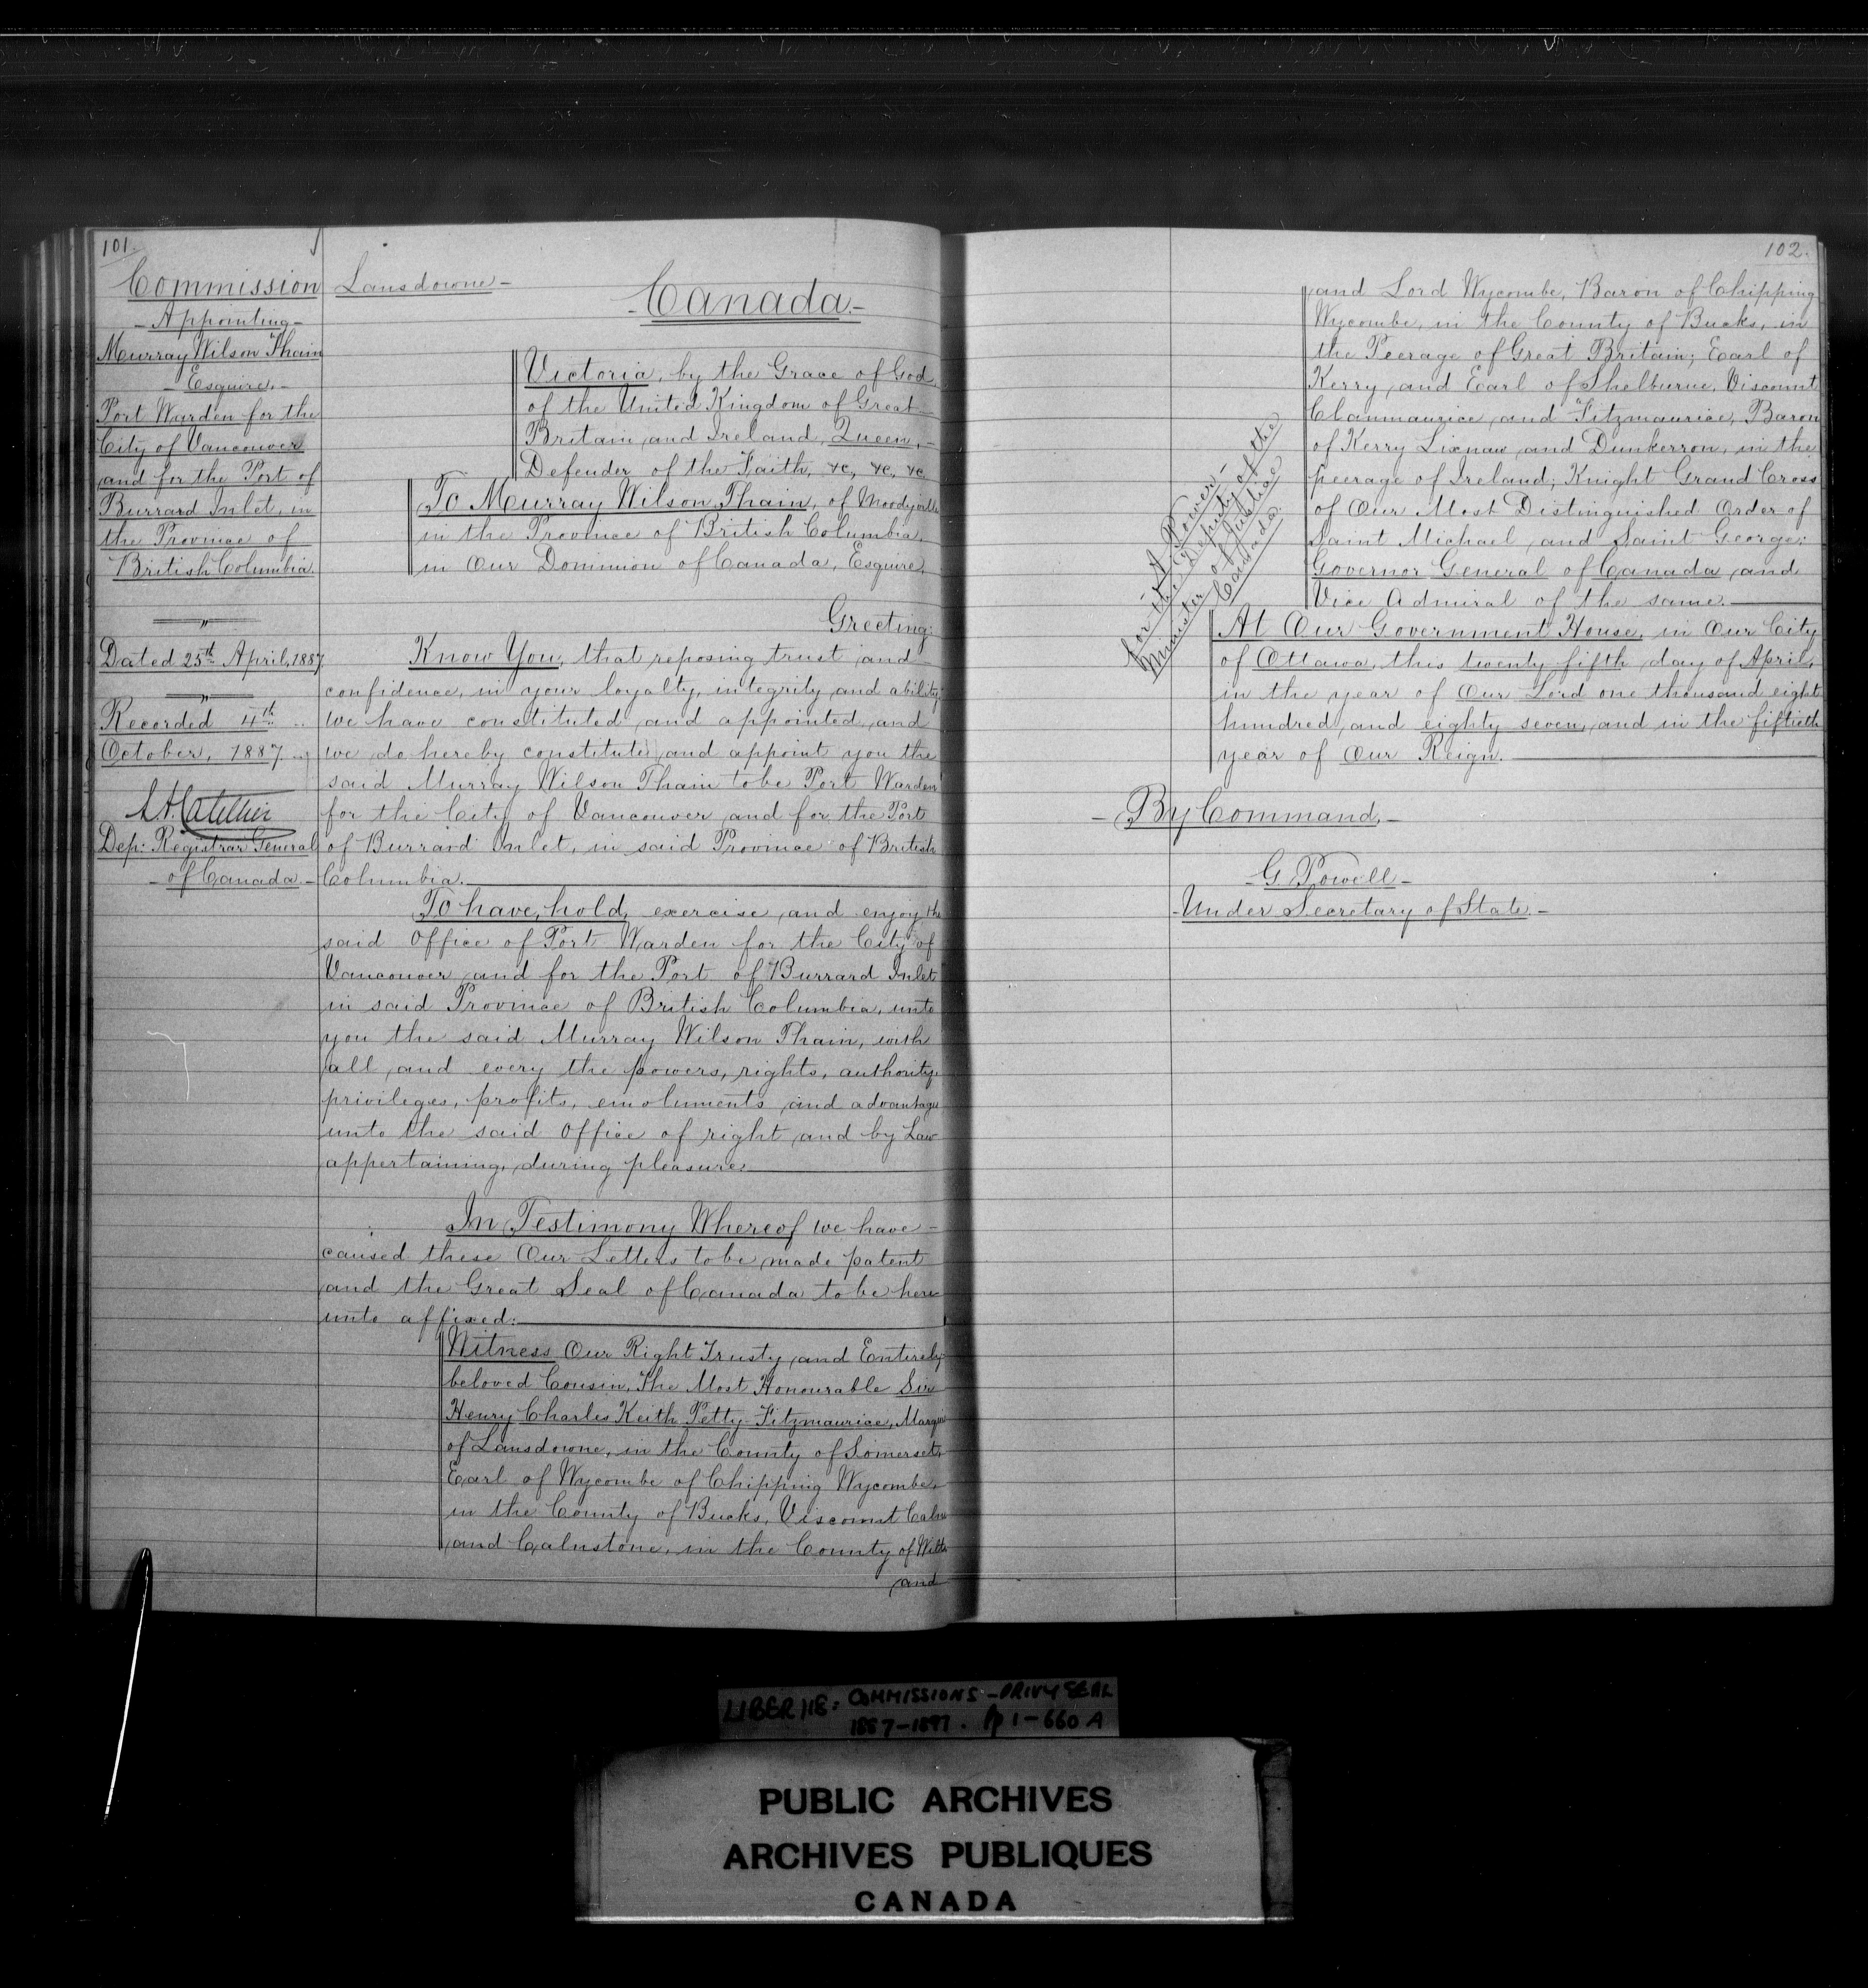 101.
Commission
- Appointing -
Murray Wilson Thain
- Esquire, -
Port Warden for the
City of Vancouver
and for the Port of
Burrard Inlet, in
the Province of
British Columbia.
Dated 25th April, 1887
Recorded 4th
October, 1887.
Dep: Registrar General
- of Canada. -
Lansdowne -
- Canada. -
Victoria, by the Grace of God,
of the United Kingdom of Great
Britain and Ireland, Queen, -
Defender of the Faith, &c, &c, &c
To Murray Wilson Thain, of Moodyville
in the Province of British Columbia,
in Our Dominion of Canada, Esquire,
Greeting:
Know You, that reposing trust and
confidence, in your loyalty, integrity and ability,
we have constituted and appointed, and
we do hereby constitute and appoint you the
said Murray Wilson Thain to be Port Warden
for the City of Vancouver and for the Port
of Burrard Inlet, in said Province of British
Columbia.
To have, hold, exercise and enjoy the
said Office of Port Warden for the City of
Vancouver and for the Port of Burrard Inlet
in said Province of British Columbia, unto
you the said Murray Wilson Thain, with
all and every the powers, rights, authority,
privileges, profits, emoluments and advantages
unto the said Office of right and by Law
appertaining, during pleasure.
In Testimony Whereof we have -
caused these Our Letters to be made patent
and the Great Seal of Canada to be here
unto affixed:
Witness Our Right Trusty and Entirely
beloved Cousin, The Most Honourable Sir
Henry Charles Keith Petty-Fitzmaurice, Marquis
of Lansdowne, in the County of Somerset,
Earl of Wycombe of Chipping Wycombe,
in the County of Bucks, Viscount Calne
and Calnstone, in the County of Wilts
and
102.
and Lord Wycombe, Baron of Chipping
Wycombe, in the County of Bucks, in
the Peerage of Great Britain; Earl of
Kerry and Earl of Shelburne, Viscount
Clanmaurice and Fitzmaurice, Baron
of Kerry Lixnaw and Dunkerron, in the
peerage of Ireland; Knight Grand Cross
of Our Most Distinguished Order of
Saint Michael and Saint George;
Governor General of Canada and
Vice Admiral of the same.
- A Power -
for the Deputy of the
Minister of Justice
Canada.
At Our Government House, in Our City
of Ottawa, this twenty fifth day of April,
in the year of Our Lord one thousand eight
hundred and eighty seven, and in the fiftieth
year of Our Reign.
- By Command, -
- G. Powell -
- Under Secretary of State. -
LIBER 118: COMMISSIONS - PRIVY SEAL
1887-1897. pp 1-660 A
PUBLIC ARCHIVES
ARCHIVES PUBLIQUES
CANADA